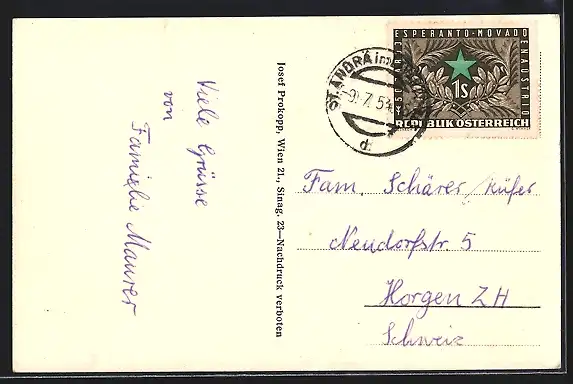 Viele Grüsse
von
Familie Maurer
Josef Prokopp, Wien 21., Sinag. 23—Nachdruck verboten
50 JAROJ ESPERANTO-MOVADO EN AUSTRIO
1S
REPUBLIK ÖSTERREICH
ST. ANDRÄ
9.7.54
d
Fam. Schärer/Küfer
Neudorfstr. 5
Horgen ZH
Schweiz